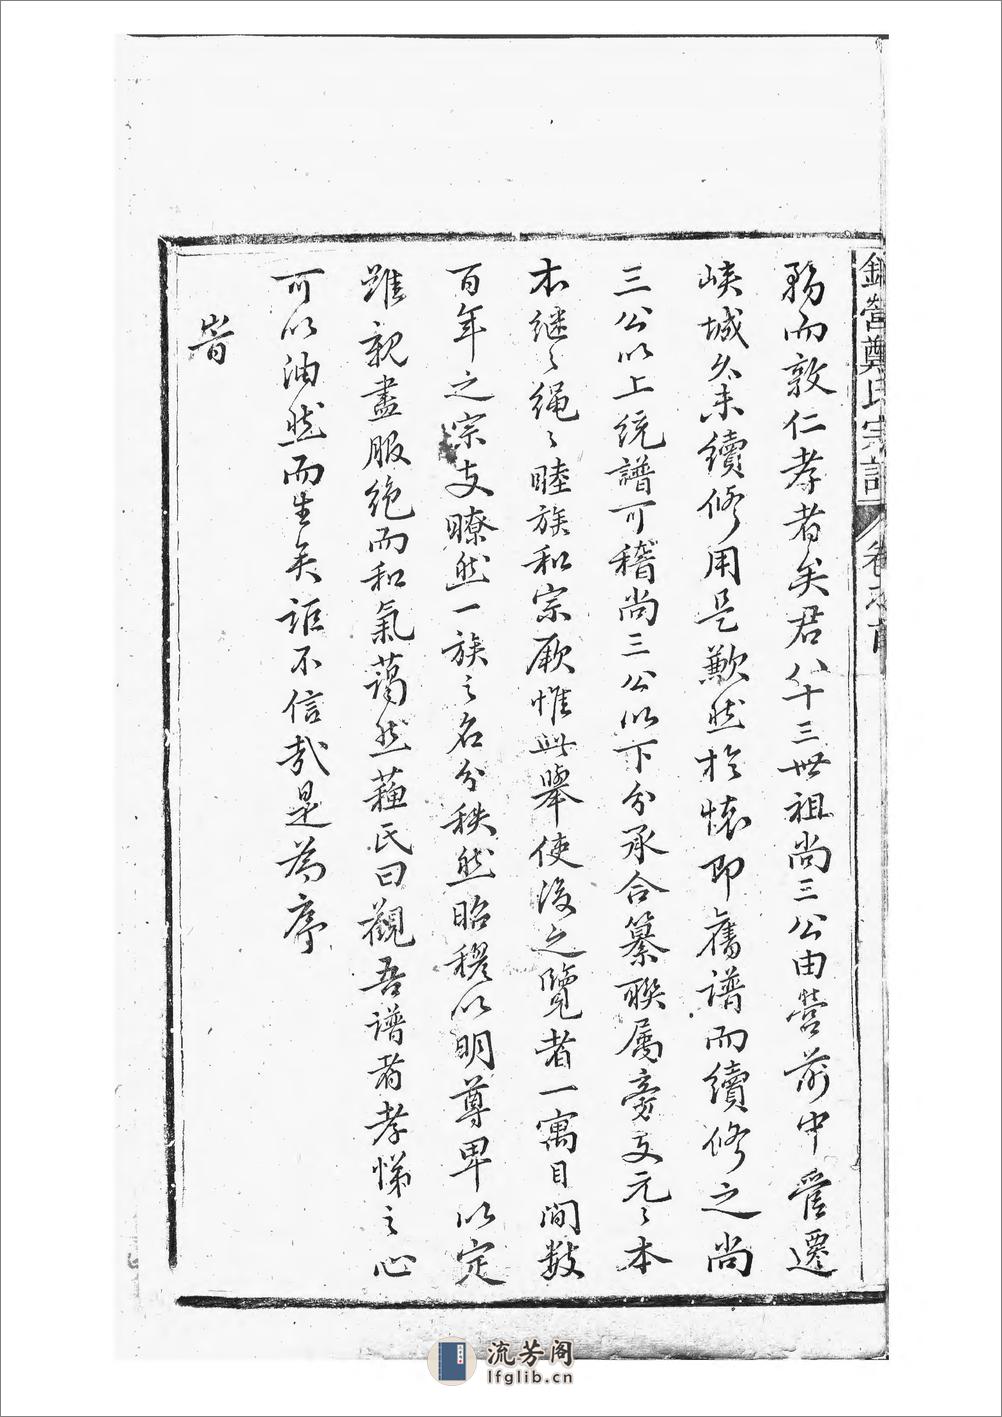 營鄭氏宗譜 卷之首
務而敦仁孝者矣君八十三世祖尚三公由營前中管遷
峽城久未續修用是歉然於懷即舊譜而續修之尚
三公以上統譜可稽尚三公以下分承合纂聯属旁支元〻本
本继〻绳〻睦族和宗厥惟此舉使後之覽者一寓目间数
百年之宗支瞭然一族之名分秩然昭穆以明尊卑以定
雖親盡服绝而和氣藹然蘓氏曰觀吾譜者孝悌之心
可以油然而生矣詎不信哉是為序
旹
流芳阁
lfglib.cn